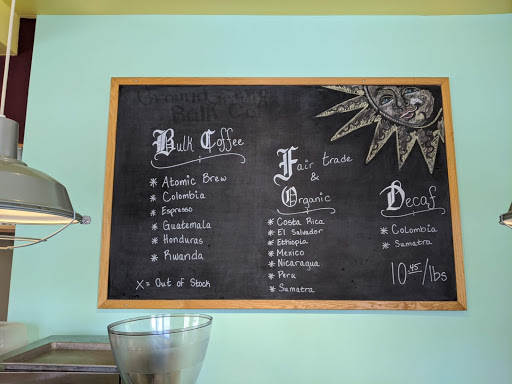 Bulk Coffee
* Atomic Brew
* Colombia
* Espresso
* Guatemala
* Honduras
* Rwanda
X = Out of Stock
Fair trade
&
Organic
* Costa Rica
* El Salvador
* Ethiopia
* Mexico
* Nicaragua
* Peru
* Sumatra
Decaf
* Colombia
* Sumatra
10.45/lbs